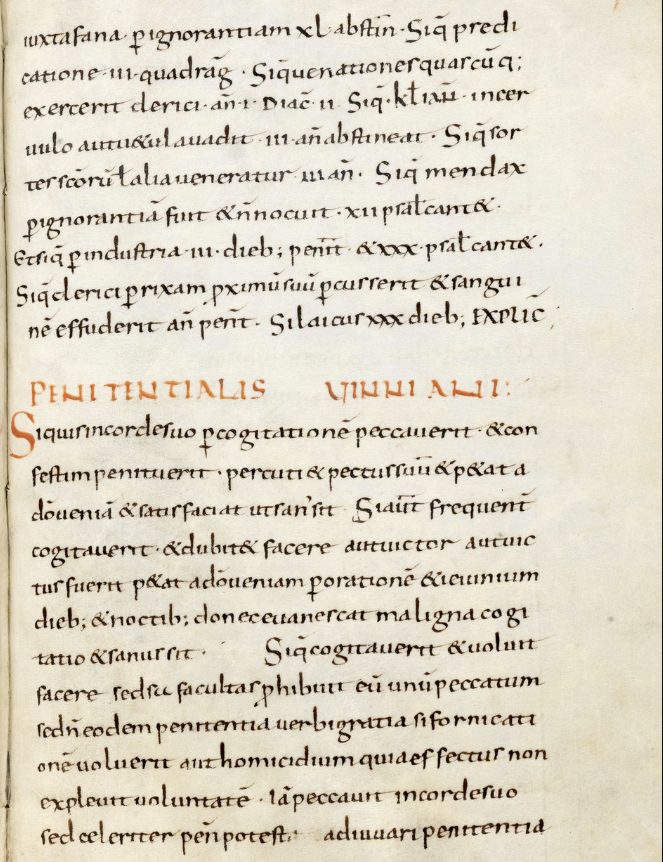 iuxta fana · p̱ ignorantiam xl · abstin̄ · Siq̄ predi
catione · iii · quadrag̅ · Siq̄ uenationes quascūq;
exercerit clerici · an̄ · i · Diac̄ · ii · Siq̄ · kƚ ian̄ · in cer
uulo aut uetula uadit · iii · an̄ abstineat · Siq̄ sor
tes scōrū ƚ alia ueneratur · iii an̄ · Siq̄ mendax
p̱ ignorantiā fuit & n̄ nocuit · xii psaƚ cant& ·
Et siq̄ p̱ industria · iii · dieb; penit̄ · & xxx · psaƚ cant& ·
Siq̄ clerici p̱ rixam p̱ximū suū p̱cusserit & sangui
nē effuderit an̄ penit̄ · Si laicus xxx dieb; EXPLIC̄;
PENITENTIALIS UINNIANI :
Siquis in corde suo p̱ cogitationē peccauerit · & con
festim penituerit · percuti& pectus suū & p&at a
dō ueniā & satisfaciat ut sanꝰ sit Si aut̄ frequent̄
cogitauerit · & dubit& facere aut uictor aut uic
tus fuerit p&at ad̄o ueniam p̱ orationē & ieiunium
dieb; & noctib; donec euanescat maligna cogi
tatio & sanus sit · Siq̄ cogitauerit & uoluit
facere sed sи facultas p̱hibuit eū unū peccatum
sed n̄ eodem penitentia uerbi gratia si fornicati
onē uoluerit aut homicidium quia effectus non
expleuit uoluntatē · Iā peccauit in corde suo
sed celeriter pen̄ potest · adiuuari penitentia